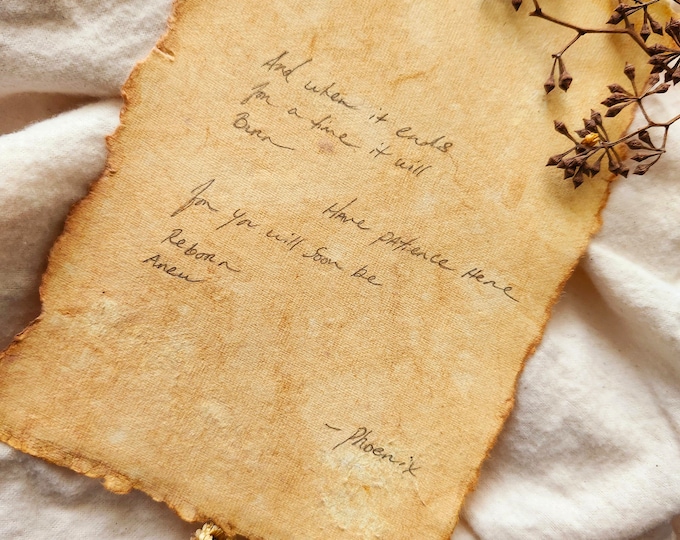 And when it ends
for a time it will
Burn
Have patience Here
for you will soon be
Reborn
Anew
- Phoenix